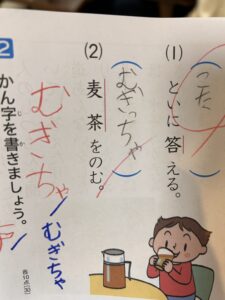 (1)
(こた)
といに答える。
(2)
(むぎっちゃ)
麦茶をのむ。
むぎちゃ
むぎちゃ
2
かん字を書きましょう。
か
各10点(30)